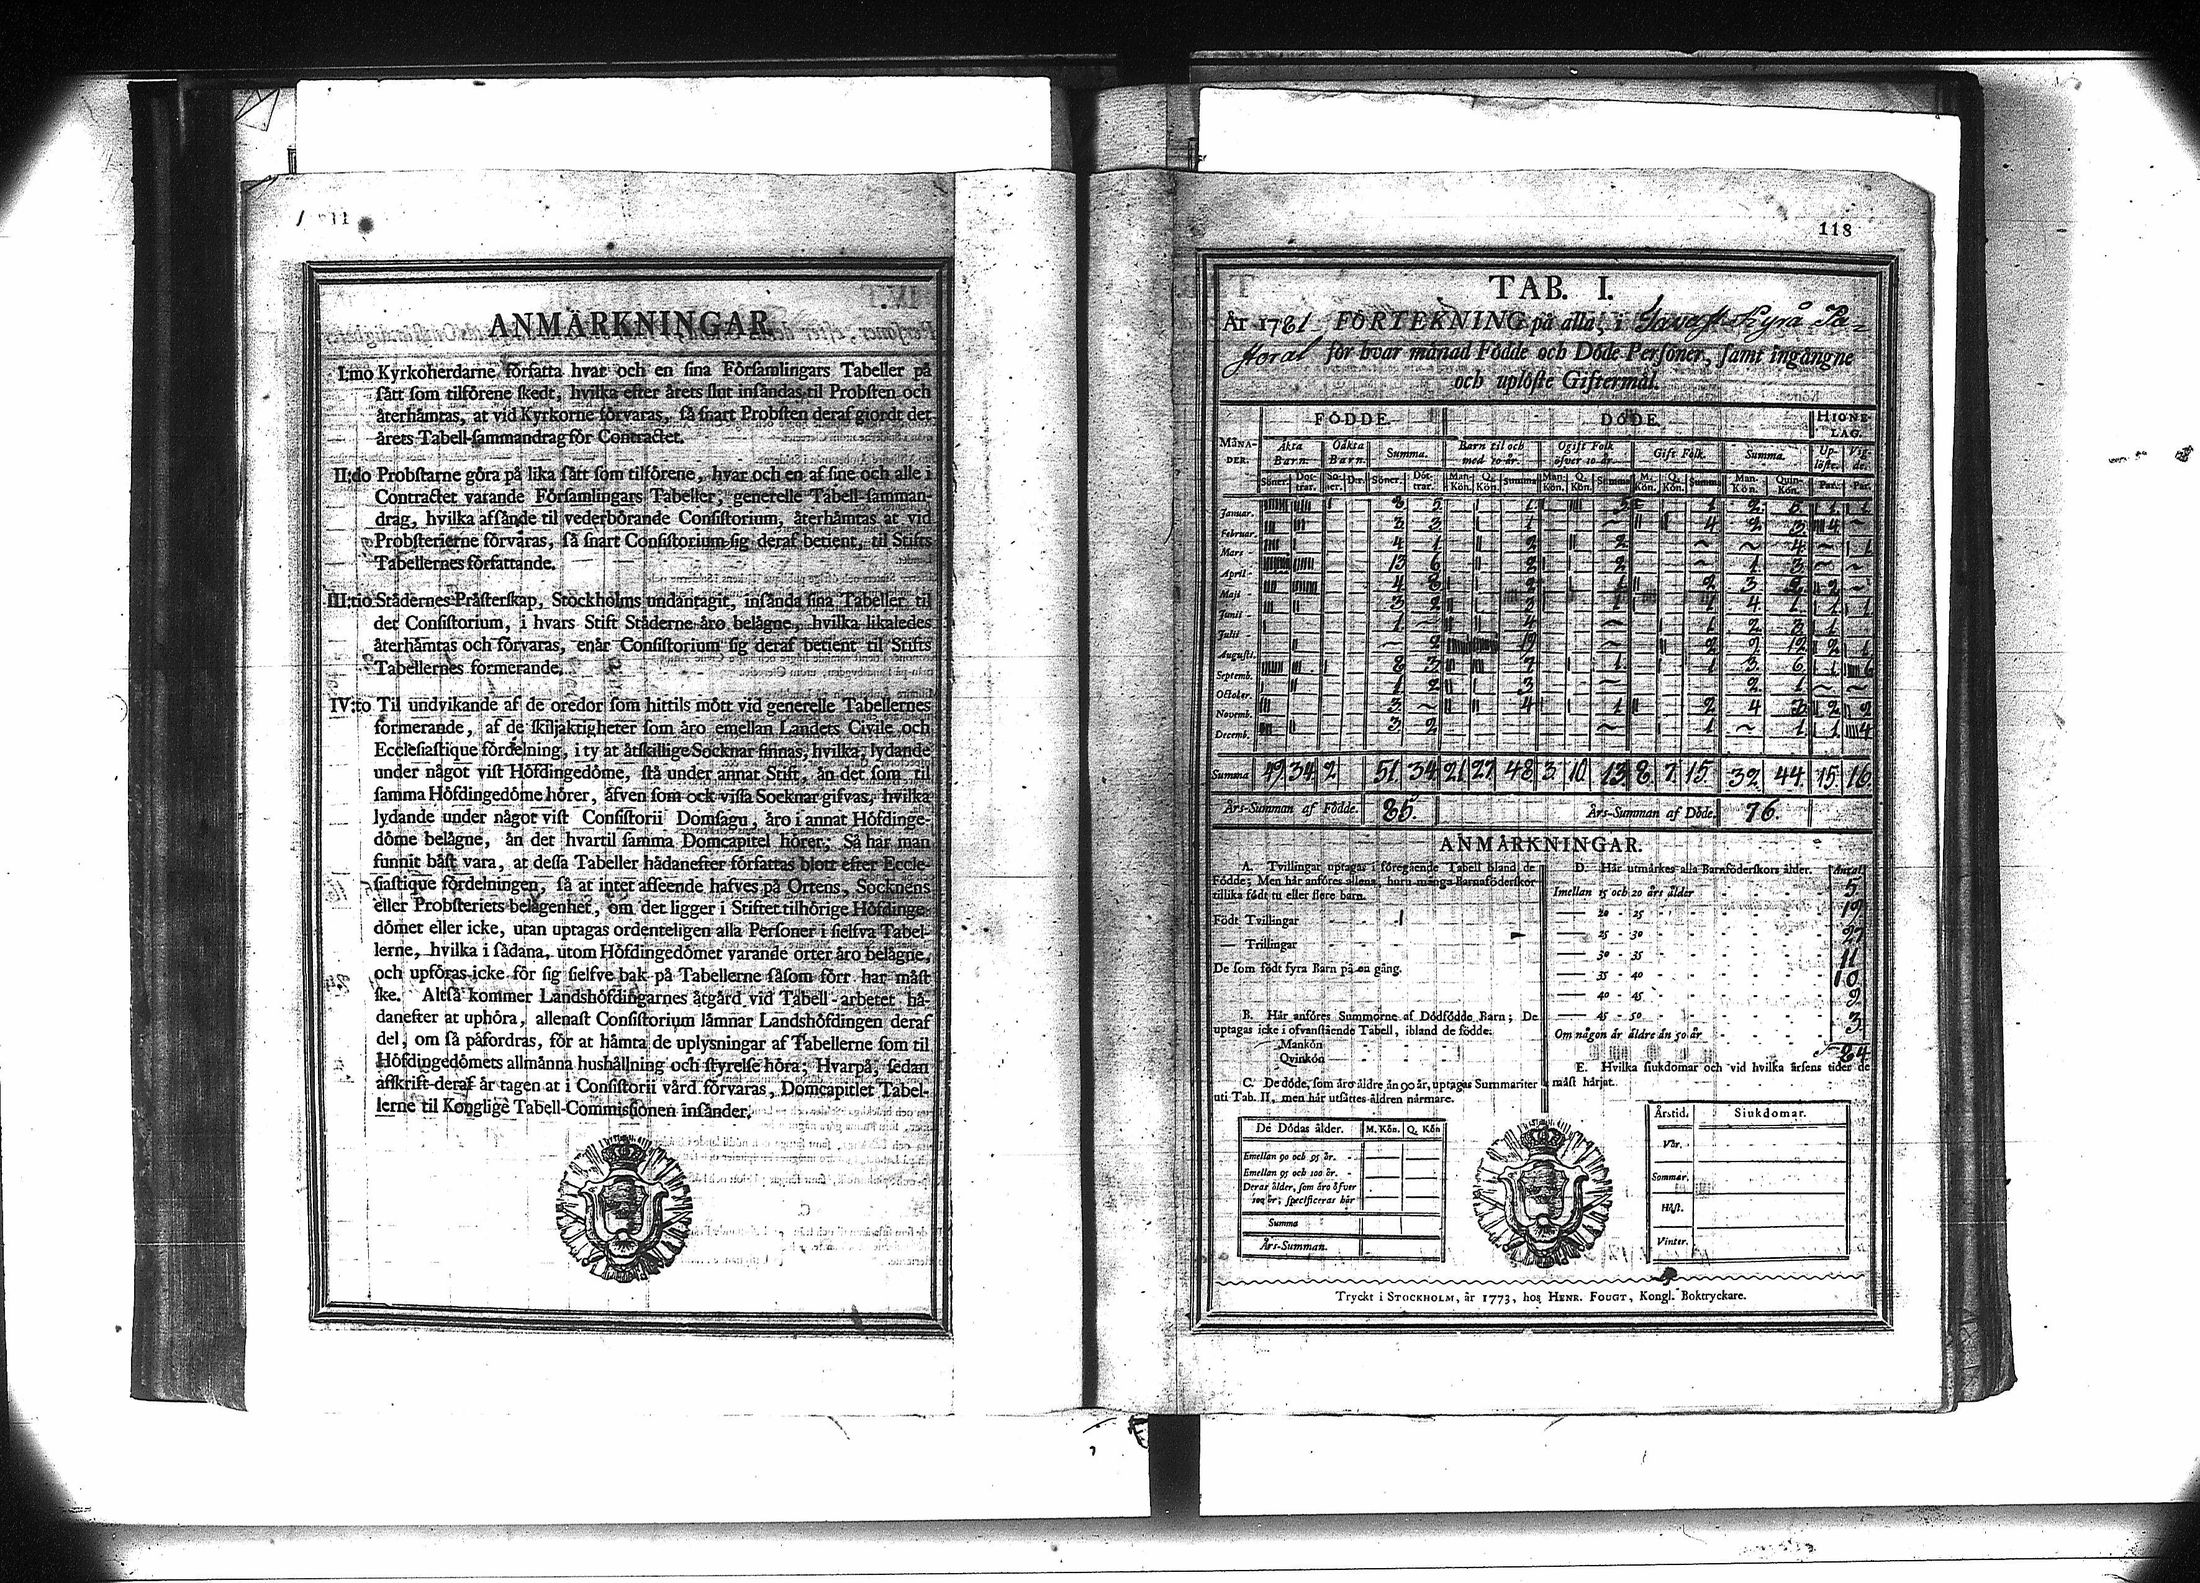 118
ANMÄRKNINGAR.
I:mo Kyrkoherdarne författa hvar och en sina Församlingars Tabeller på
sätt som tilförene skedt, hvilka efter årets slut insändas til Probsten och
återhämtas, at vid Kyrkorne förvaras, så snart Probsten deraf giordt det
årets Tabell-sammandrag för Contractet.
II:do Probstarne göra på lika sätt som tilförene, hvar och en af sine och alle i
Contractet varande Församlingars Tabeller, generelle Tabell-samman-
drag, hvilka afsände til vederbörande Consistorium, återhämtas at vid
Probsterierne förvaras, så snart Consistorium sig deraf betient, til Stifts
Tabellernes författande.
III:tio Städernes Prästerskap, Stockholms undantagit, insända sina Tabeller til
det Consistorium, i hvars Stift Städerne äro belägne, hvilka likaledes
återhämtas och förvaras, enär Consistorium sig deraf betient til Stifts
Tabellernes formerande.
IV:to Til undvikande af de oredor som hittils mött vid generelle Tabellernes
formerande, af de skiljaktigheter som äro emellan Landets Civile och
Ecclesiastique fördelning, i ty at åtskillige Socknar finnas, hvilka, lydande
under något visst Höfdingedöme, stå under annat Stift, än det som til
samma Höfdingedöme hörer, äfven som ock vissa Socknar gifvas, hvilka
lydande under något vist Consistorii Domsagu, äro i annat Höfdinge-
döme belägne, än det hvartil samma Domcapitel hörer; Så har man
funnit bäst vara, at dessa Tabeller hädanefter författas blott efter Eccle-
siastique fördelningen, så at intet afseende hafves på Ortens, Socknens
eller Probsteriets belägenhet, om det ligger i Stiftet tilhörige Höfdinge-
dömet eller icke, utan uptagas ordenteligen alla Personer i sielfva Tabel-
lerne, hvilka i sådana, utom Höfdingedömet varande orter äro belägne,
och upföras icke för sig sielfve bak på Tabellerne såsom förr har måst
ske. Altså kommer Landshöfdingarnes åtgärd vid Tabell-arbetet hä-
danefter at uphöra, allenast Consistorium lämnar Landshöfdingen deraf
del, om så påfordras, för at hämta de uplysningar af Tabellerne som til
Höfdingedömets allmänna hushållning och styrelse höra; Hvarpå, sedan
afskrift deraf är tagen at i Consistorii vård förvaras, Domcapitlet Tabel-
lerne til Konglige Tabell-Commissionen insänder.
TAB. I.
År 1781 FÖRTEKNING på alla, i Tavast Kyrö Pa-
storat för hvar månad Födde och Döde Personer, samt ingångne
och uplöste Giftermål.
FÖDDE. DÖDE. HIONE-
LAG.
MÅNA-
DER. Äkta Barn. Oäkta Barn. Summa. Barn til och med 10 år. Ogift Folk öfver 10 år. Gift Folk. Summa. Up-
löste. Vig-
de.
Söner. Döt-
trar. Sö-
ner. Dot. Söner. Döt-
trar. Man-
Kön. Q. Kön. Summa Man-
Kön. Q. Kön. Summa M. Kön. Q. Kön. Summa Man-
Kön. Quin-
Kön. Par. Par.
Januar. 8 5 1
Februar. 3 3 1 4 2 3 4
Mars 4 1 2 2 4 1
April 13 6 2 2 1 3
Maji 4 8 2 1 2 3 2 2
Junii 3 2 4 1 1 1
Julii 1 4 1 2 3 1
Augusti. 2 19 2 9 12 2 1
Septemb. 8 3 7 1 1 3 6 1 6
October. 1 2 3 2 1
Novemb. 3 4 1 2 4 2 2
Decemb. 3 2 1 1 1 4
Summa 49 34 2 51 34 21 27 48 3 10 13 8 7 15 32 44 15 16
Års-Summan af Födde. 85. Års-Summan af Döde. 76.
ANMÄRKNINGAR.
A. Tvillingar uptagas i föregående Tabell bland de
födde; Men här anföres allena, huru många Barnaföderskor
tillika födt tu eller flere barn.
Födt Tvillingar 1
— Trillingar
De som födt fyra Barn på en gång.
B. Här anföres Summorne af Dödfödde Barn; De
uptagas icke i ofvanstående Tabell, ibland de födde.
Mankön
Qvinkön
C. De döde, som äro äldre än 90 år, uptagas Summariter
uti Tab. II, men här utsättes åldren närmare.
De Dödas ålder. M. Kön. Q. Kön
Emellan 90 och 95 år.
Emellan 95 och 100 år.
Deras ålder, som äro öfver
100 år; specificeras här
Summa
Års-Summan.
D. Här utmärkes alla Barnföderskors ålder. Antal
Imellan 15 och 20 års ålder 5
— 20 - 25 19
— 25 - 30 27
— 30 - 35 11
— 35 - 40 10
— 40 - 45 9
— 45 - 50 3
Om någon är äldre än 50 år
84
E. Hvilka siukdomar och vid hvilka årsens tider de
mäst härjat.
Årstid. Siukdomar.
Vår.
Sommar.
Höst.
Vinter.
Tryckt i STOCKHOLM, år 1773, hos HENR. FOUGT, Kongl. Boktryckare.